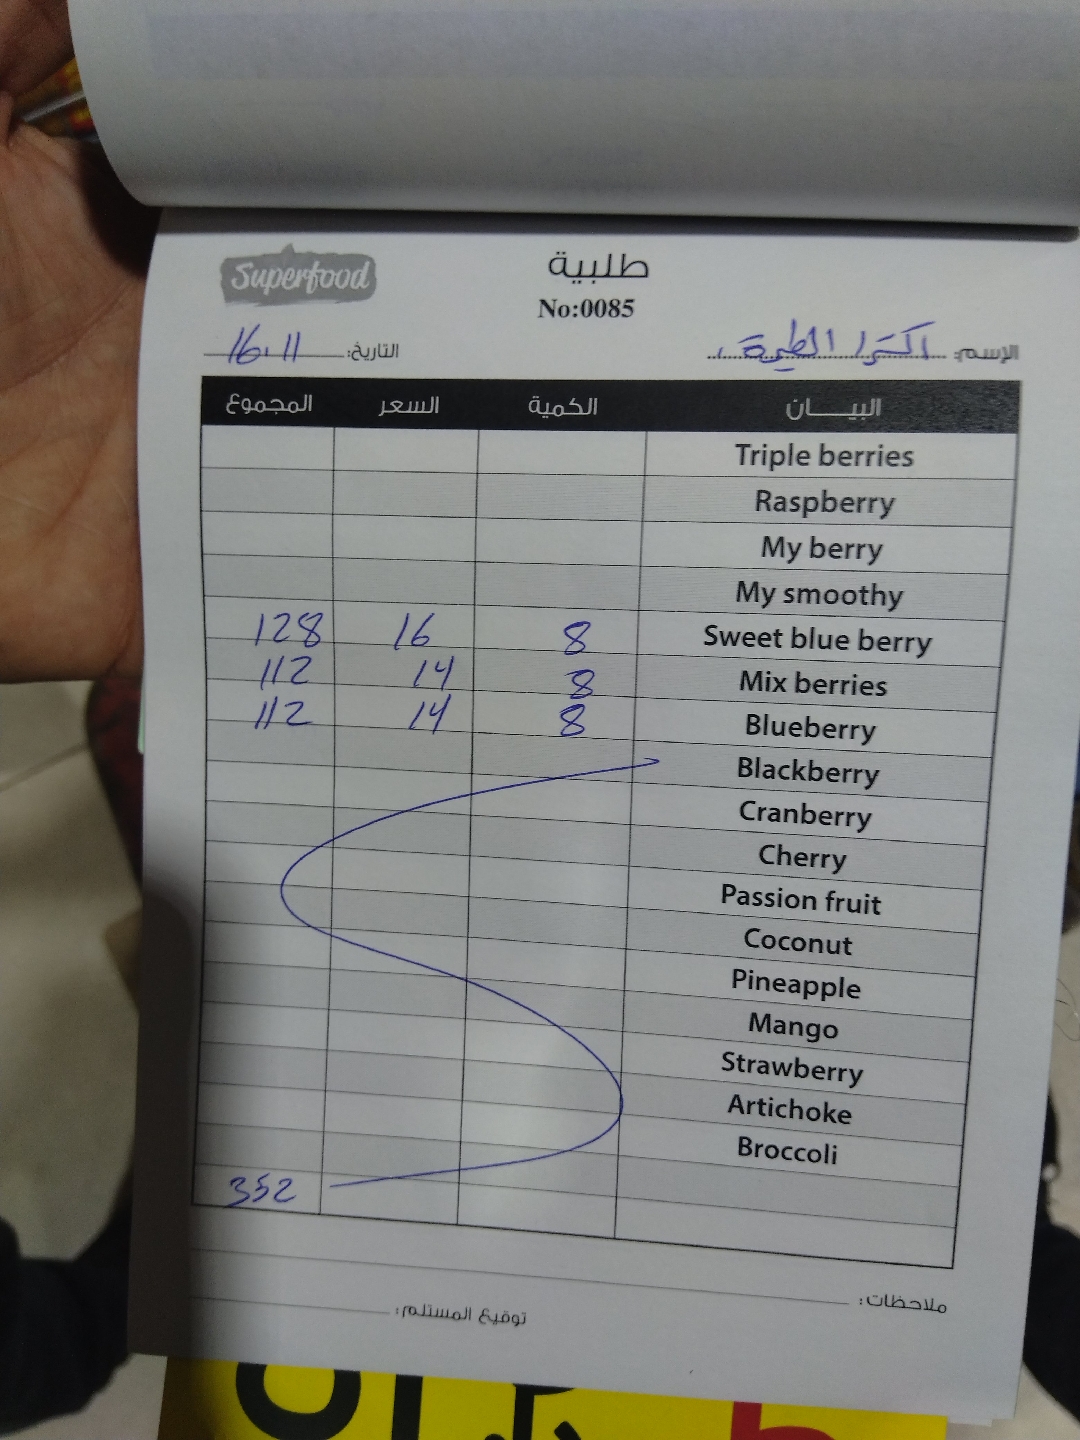 Superfood
طلبية
No:0085
الإسم: اكسترا الطيرة
التاريخ: 16.11
البيـــــان الكمية السعر المجموع
Triple berries
Raspberry
My berry
My smoothy
Sweet blue berry 8 16 128
Mix berries 8 14 112
Blueberry 8 14 112
Blackberry
Cranberry
Cherry
Passion fruit
Coconut
Pineapple
Mango
Strawberry
Artichoke
Broccoli
352
ملاحظات:
توقيع المستلم: